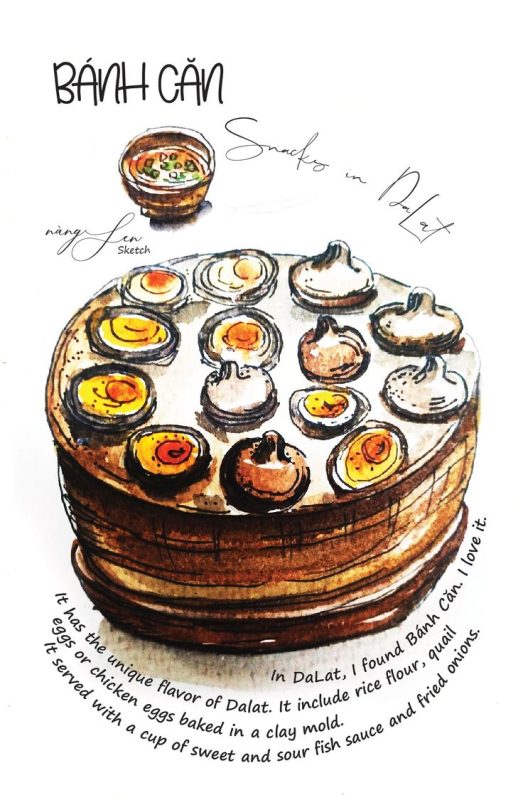 BÁNH CĂN
Snacks in DaLat
nàng Len
Sketch
In DaLat, I found Bánh Căn. I love it.
It has the unique flavor of Dalat. It include rice flour, quail
eggs or chicken eggs baked in a clay mold.
It served with a cup of sweet and sour fish sauce and fried onions.